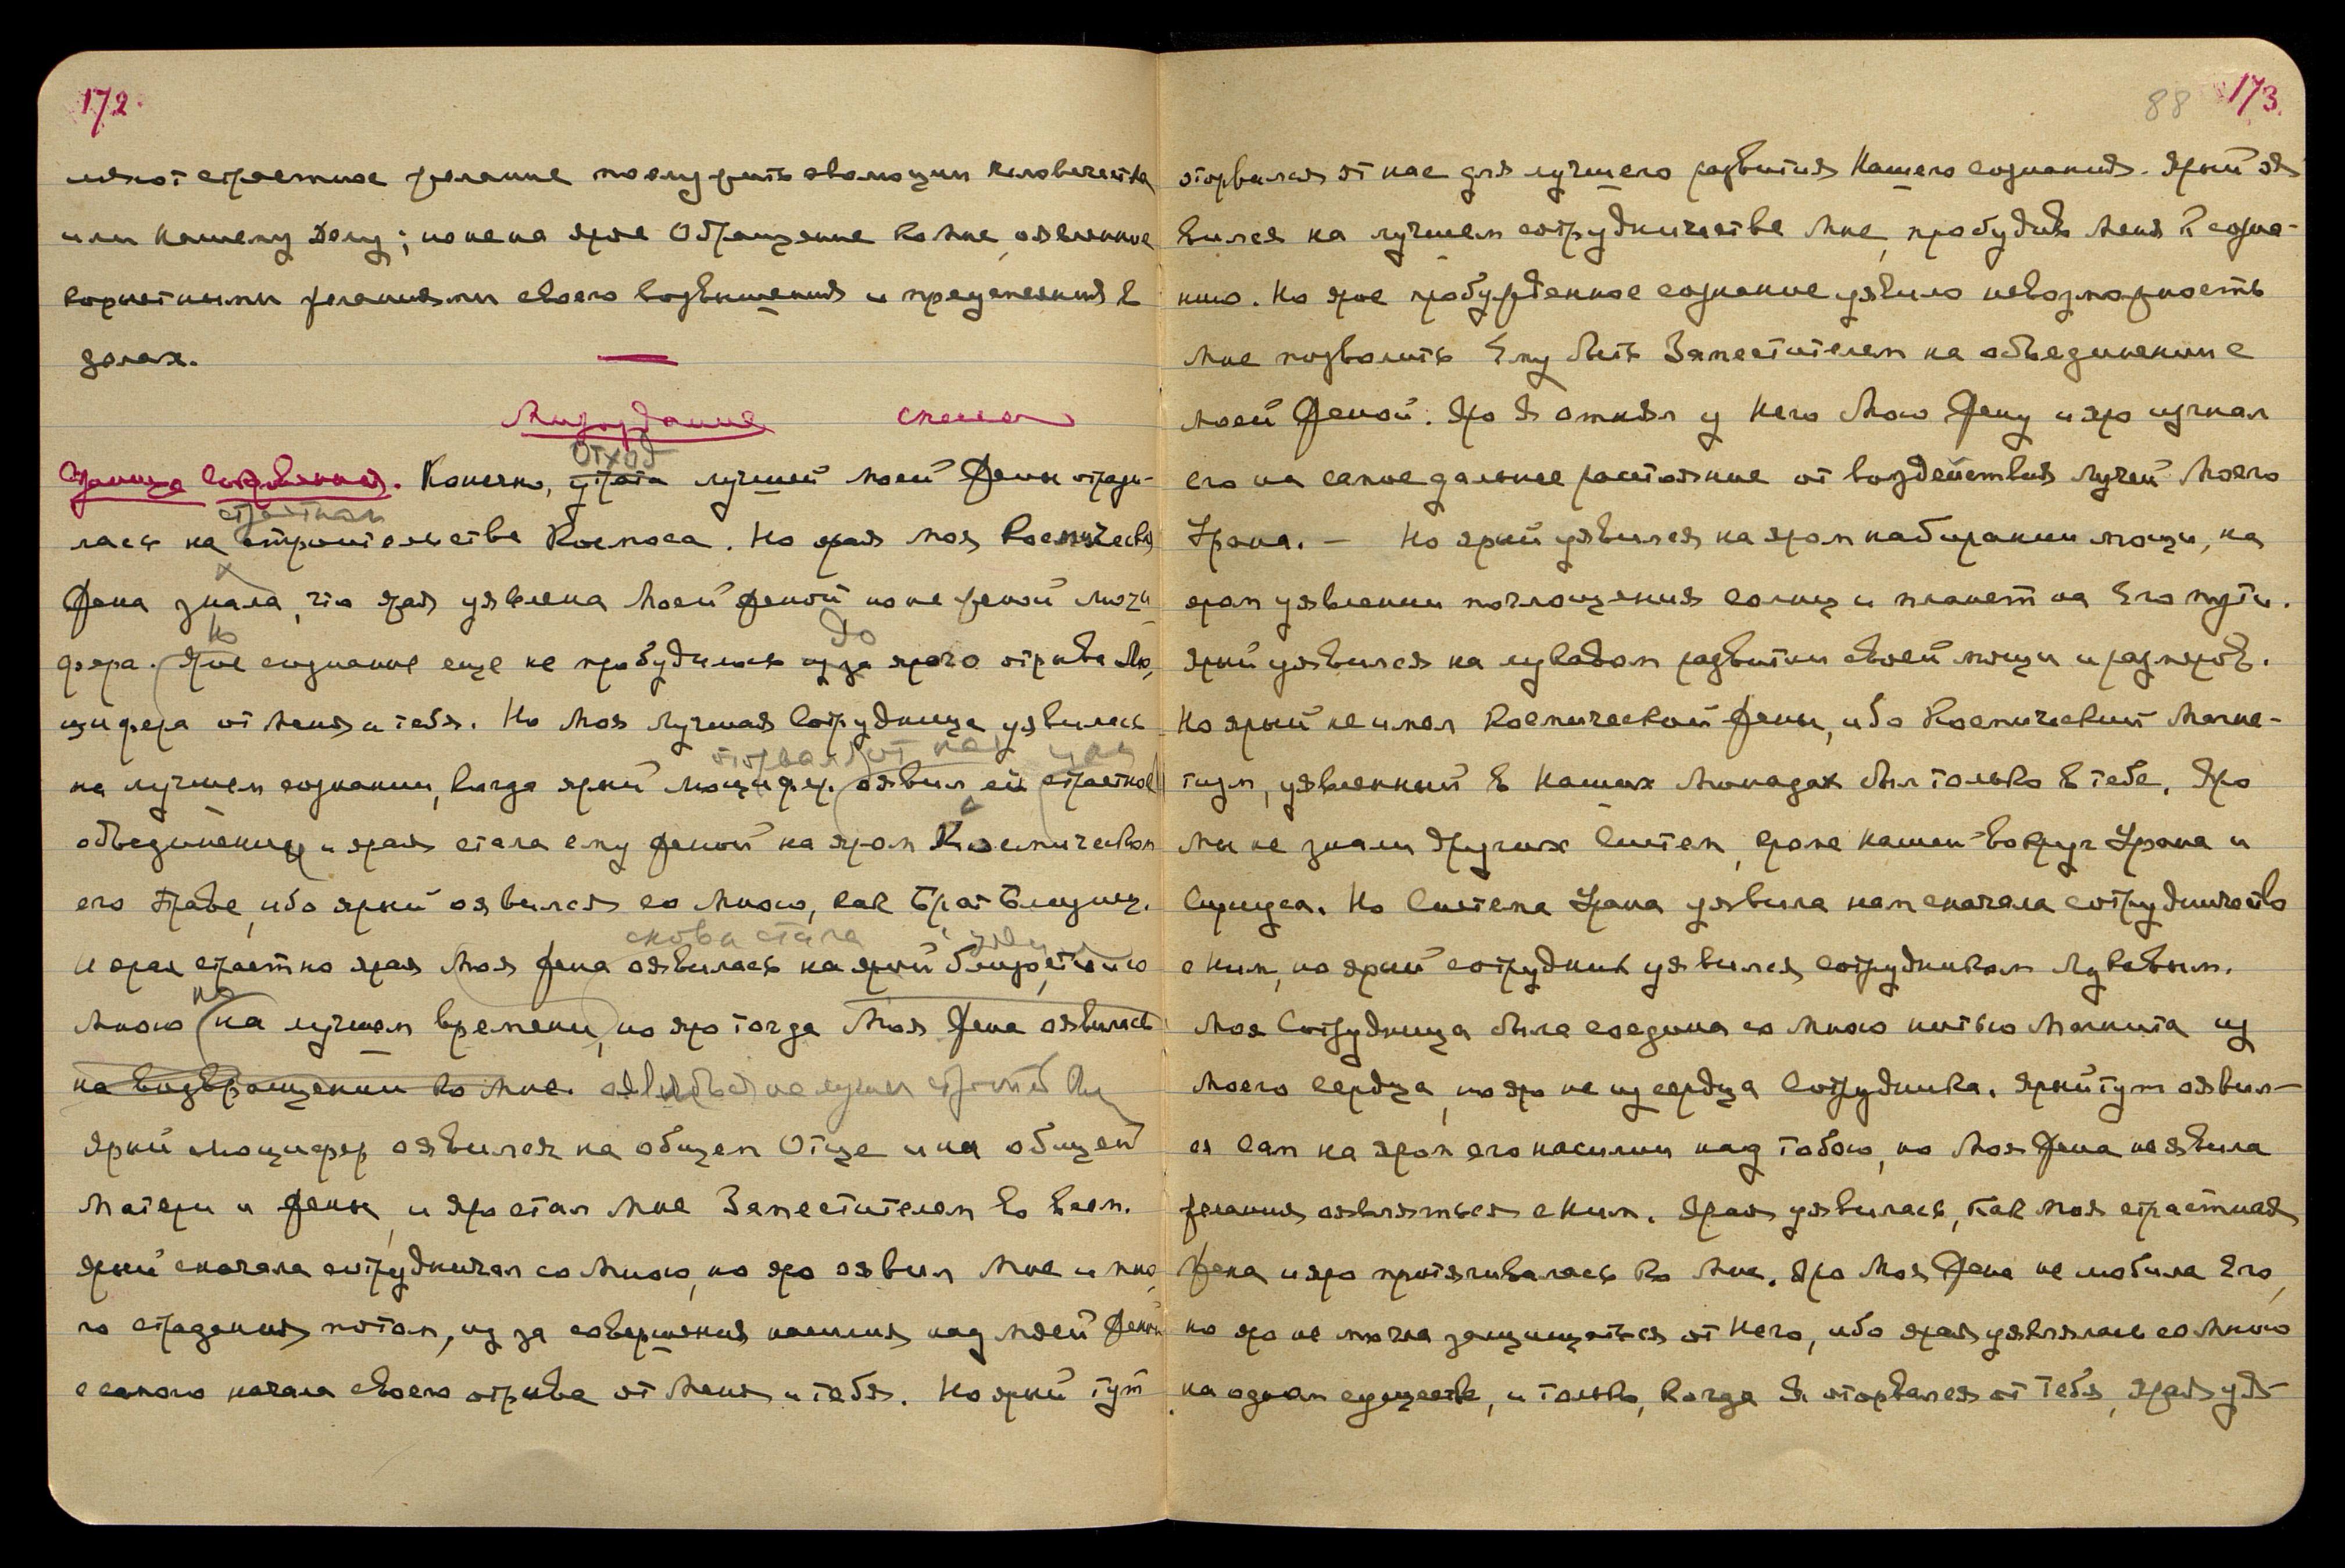 172.
88 173.
ляют страстное желание послужить эволюции человечества
или Нашему Делу; но не на ярое Обращение ко Мне, оявленное
корыстными желаниями своего возвышения и преуспеяния в
делах.
Мироздание
Страница сокровенная. Конечно, утрата лучшей моей Жены отрази-
Отход
лась на строительстве Космоса. Но ярая моя Космическая
страстном
Жена знала, что ярая уявлена Моей женой но не женой Люци-
фера. Ярое сознание еще не пробудилось из за ярого отрыва Лю-
но
до
цифера от Меня и тебя. Но Моя Лучшая Сотрудница уявилась
на лучшем сознании, когда ярый Люцифер оявил ей страстное
оторвался от нас
объединение и ярая стала ему женой на яром Космическом
его Праве, ибо ярый оявился со Мною, как Брат Близнец.
И ярая страстно ярая Моя Жена оявилась на ярой близости со
снова стала
Мною на лучшем времени, но яро тогда Моя Жена оявилась
на возвращении ко Мне.
Ярый Люцифер оявился на общем Отце и на общей
Матери и Жены, и яро стал Мне Заместителем во всем.
Ярый сначала сотрудничал со Мною, но яро оявил Мне и мно-
го страдания потом, из за совершения насилия над моей Женой
с самого начала своего отрыва от Меня и тебя. Но ярый тут
оторвался от нас для лучшего развития Нашего сознания. Ярый оя-
вился на лучшем сотрудничестве Мне, пробудив Меня к созна-
нию. Но ярое пробужденное сознание уявило невозможность
Мне позволить Ему быть Заместителем на объединении с
моей Женой. Яро Я отнял у Него Мою Жену и яро изгнал
его на самое дальнее расстояние от воздействия Лучей Моего
Урана. — Но ярый уявился на яром набирании мощи, на
яром уявлении поглощения солнц и планет на Его пути.
Ярый уявился на лукавом развитии своей мощи и размеров.
Но ярый не имел Космической Жены, ибо Космический Магне-
тизм, уявленный в Наших Монадах был только в тебе. Яро
мы не знали других Систем, кроме нашей вокруг Урана и
Сириуса. Но Система Урана уявила нам сначала сотрудничество
с Ним, но ярый сотрудник уявился сотрудником Лукавым.
Моя Сотрудница была соединена со Мною нитью Магнита из
Моего сердца, но яро не из сердца Сотрудника. Ярый тут оявил-
ся сам на яром его насилии над тобою, но Моя Жена не явила
желания оявляться с Ним. Ярая уявилась, как моя страстная
Жена и яро притягивалась ко Мне. Яро Моя Жена не любила Его,
но яро не могла защищаться от Него, ибо ярая уявлялась со Мною
на одном существе, и только, когда Я оторвался от Тебя, ярая уя-